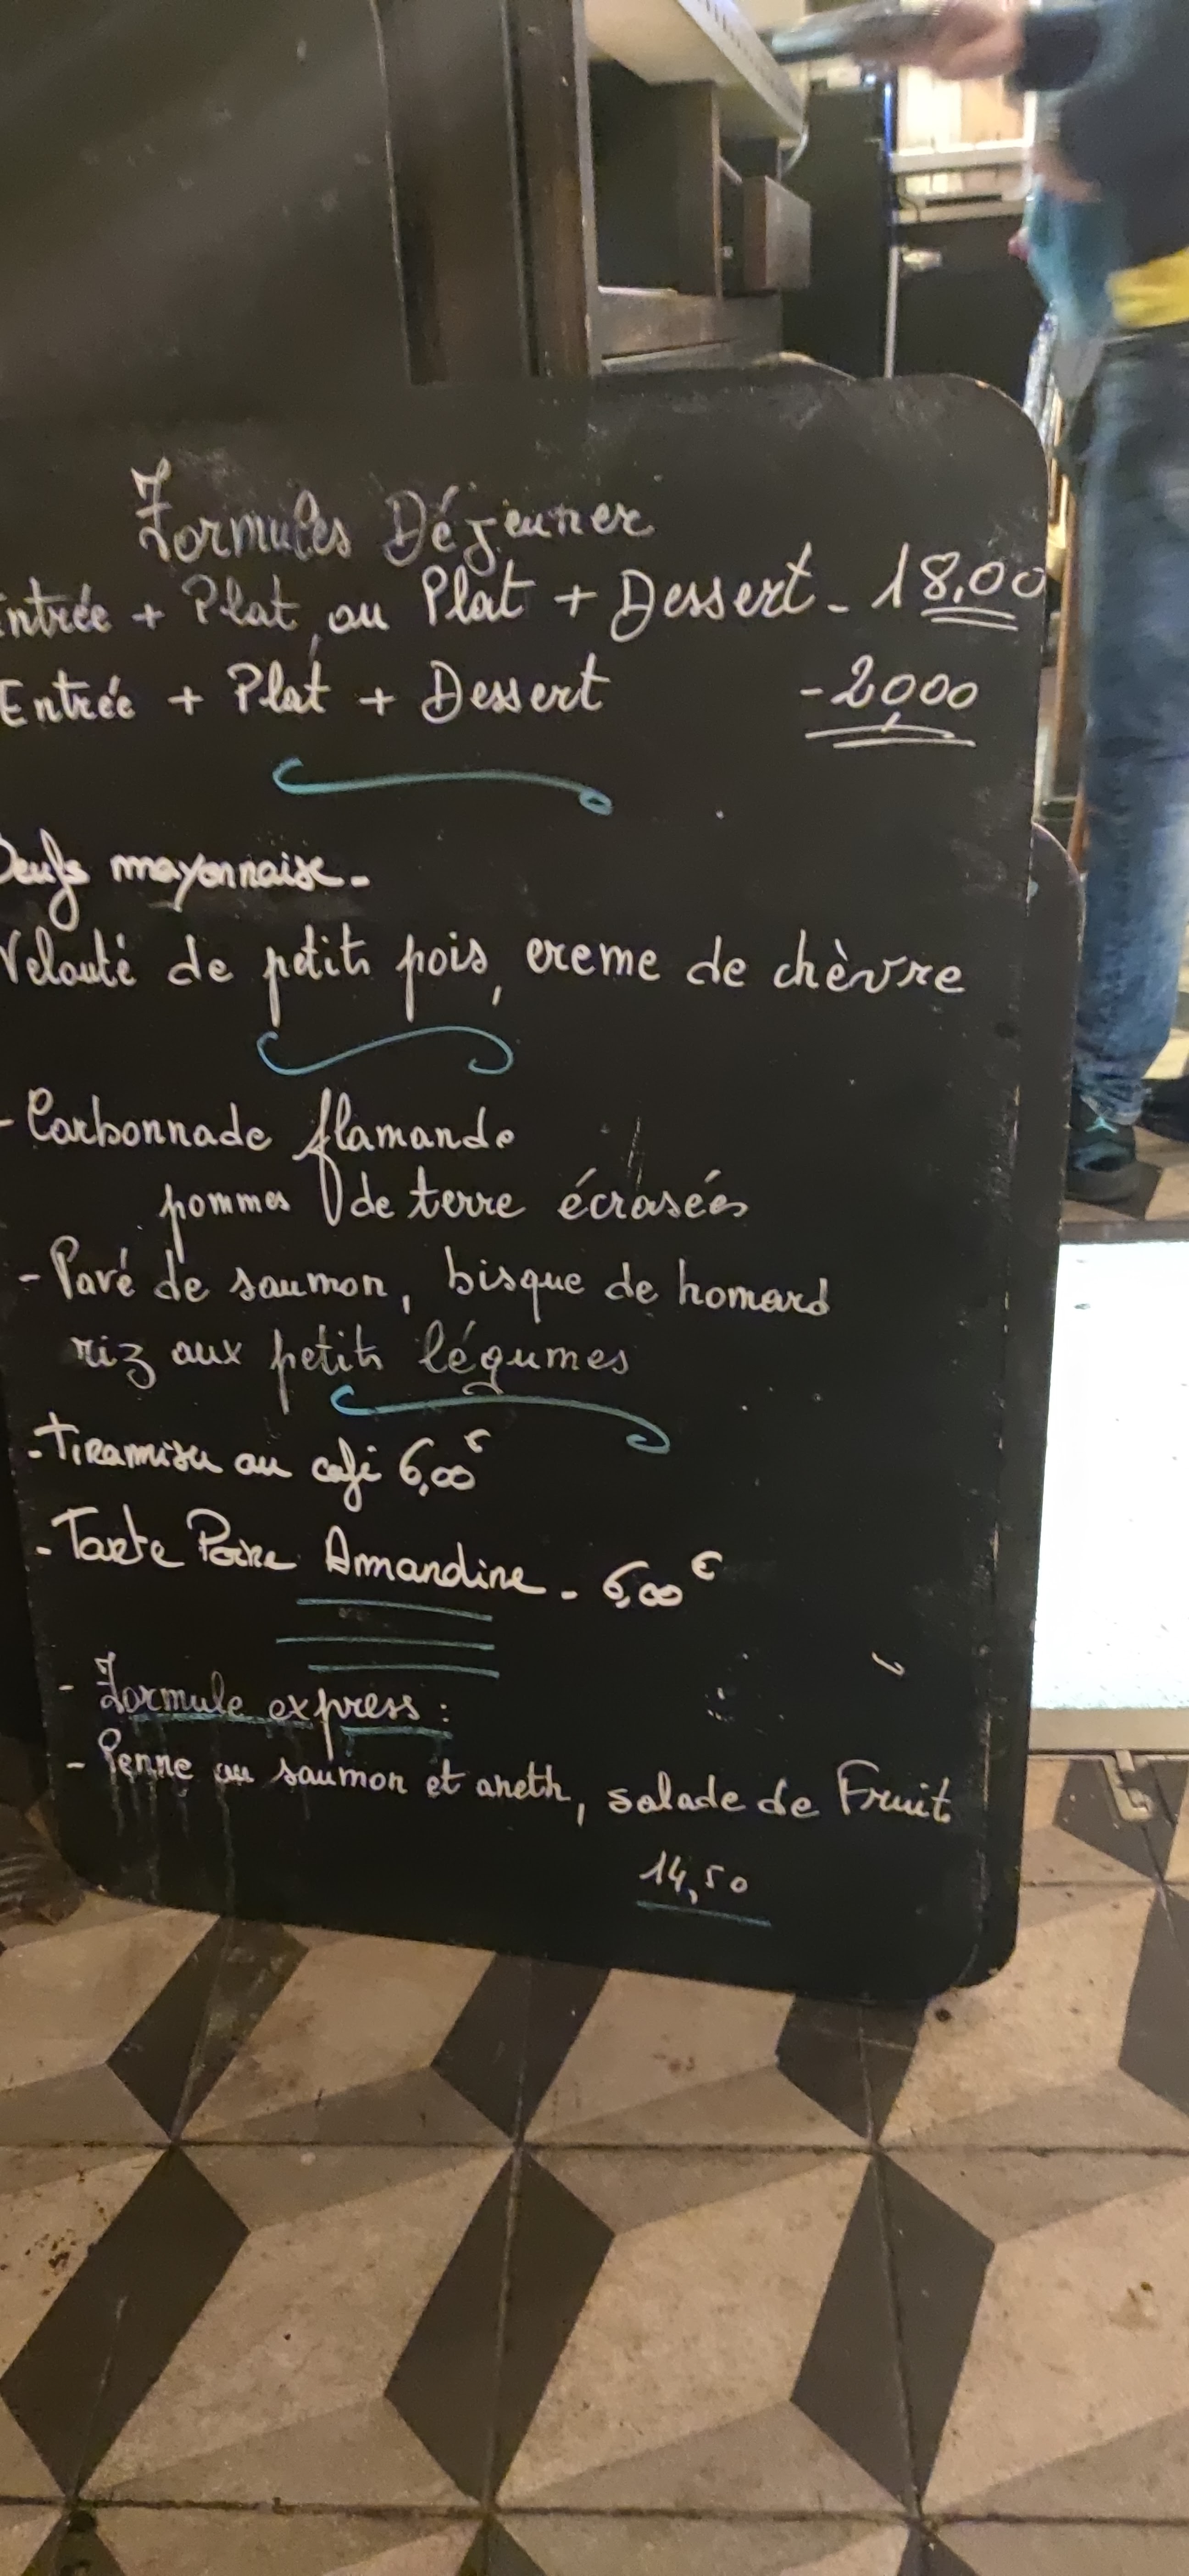 Formules Déjeuner
Entrée + Plat, ou Plat + Dessert - 18,00
Entrée + Plat + Dessert - 20,00
Oeufs mayonnaise -
Velouté de petits pois, creme de chèvre
- Carbonnade flamande
pommes de terre écrasées
- Pavé de saumon, bisque de homard
riz aux petits légumes
- Tiramisu au café 6,00€
- Tarte Poire Amandine - 6,00€
- Formule express :
- Penne au saumon et aneth, salade de Fruit
14,50